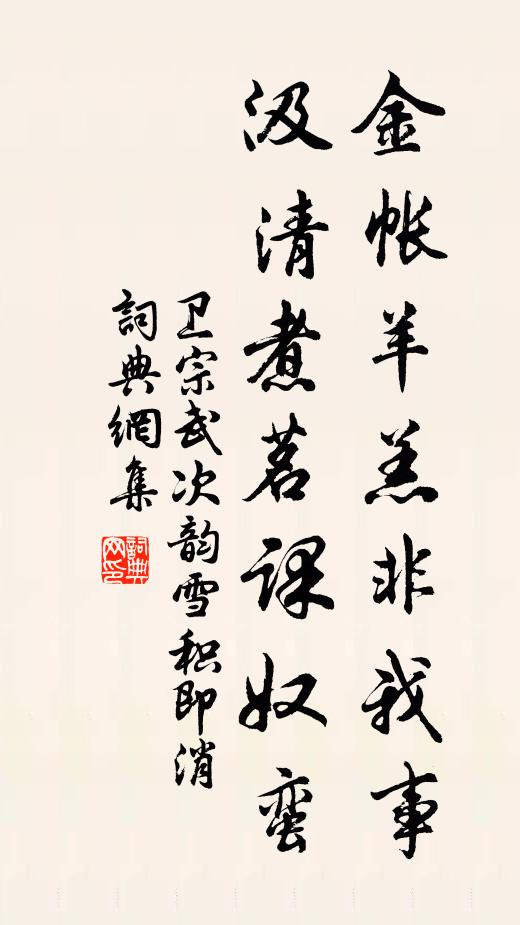 金帐羊羔非我事
汲清煮茗课奴蛮
卫宗武次韵雪积即消
詞典網集
詞典网印